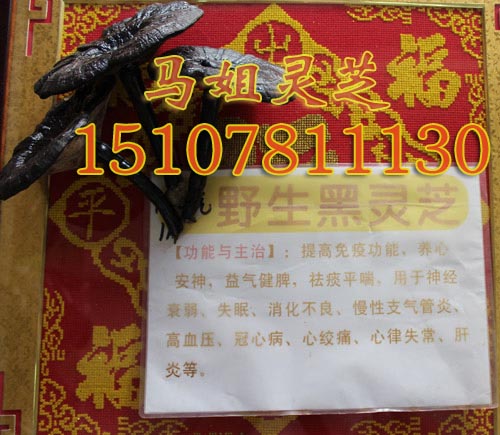 福
山
马姐灵芝
15107811130
平
野生黑灵芝
【功能与主治】：提高免疫功能、养心
安神，益气健脾，祛痰平喘，用于神经
衰弱、失眠、消化不良、慢性支气管炎、
高血压、冠心病、心绞痛、心律失常、肝
炎等。
福